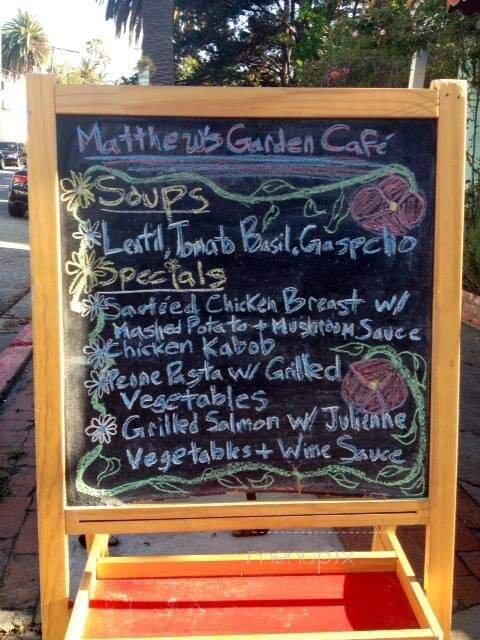 Matthew's Garden Café
Soups
Lentil, Tomato Basil, Gaspcho
Specials
Sauteéd Chicken Breast w/
Mashed Potato + Mushroom Sauce
Chicken Kabob
Penne Pasta w/ Grilled
Vegetables
Grilled Salmon w/ Julienne
Vegetables + Wine Sauce
menupix